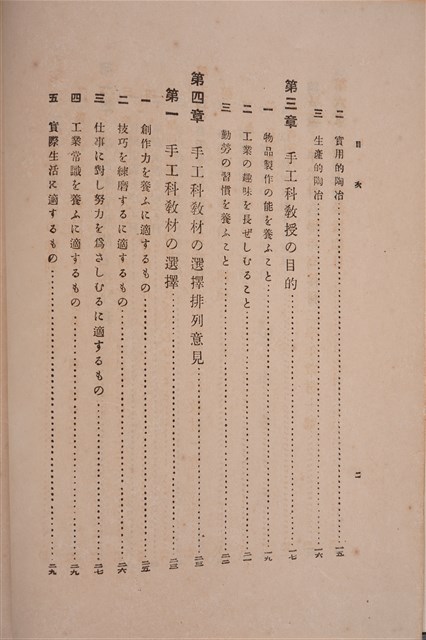 目次
二
二 實用的陶冶……一五
三 生產的陶冶……一六
第三章 手工科敎授の目的……一七
一 物品製作の能を養ふこと……一九
二 工業の趣味を長ぜしむること……二一
三 勤勞の習慣を養ふこと……二二
第四章 手工科敎材の選擇排列意見……二三
第一 手工科敎材の選擇……二三
一 創作力を養ふに適するもの……二五
二 技巧を練磨するに適するもの……二六
三 仕事に對し努力を爲さしむるに適するもの……二七
四 工業常識を養ふに適するもの……二九
五 實際生活に適するもの……二九